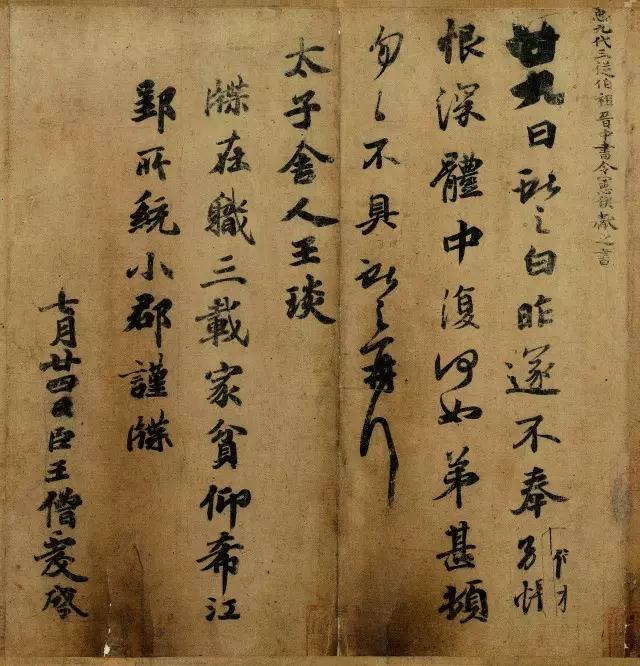 臣九代三從伯祖晉中書令憲侯獻之書
廿九日獻之白昨遂不奉別悵
恨深體中復何如弟甚頓
勿〻不具獻之再拜
太子舍人王琰
牒在職三載家貧仰希江
郢所統小郡謹牒
七月廿四日臣王僧虔啓